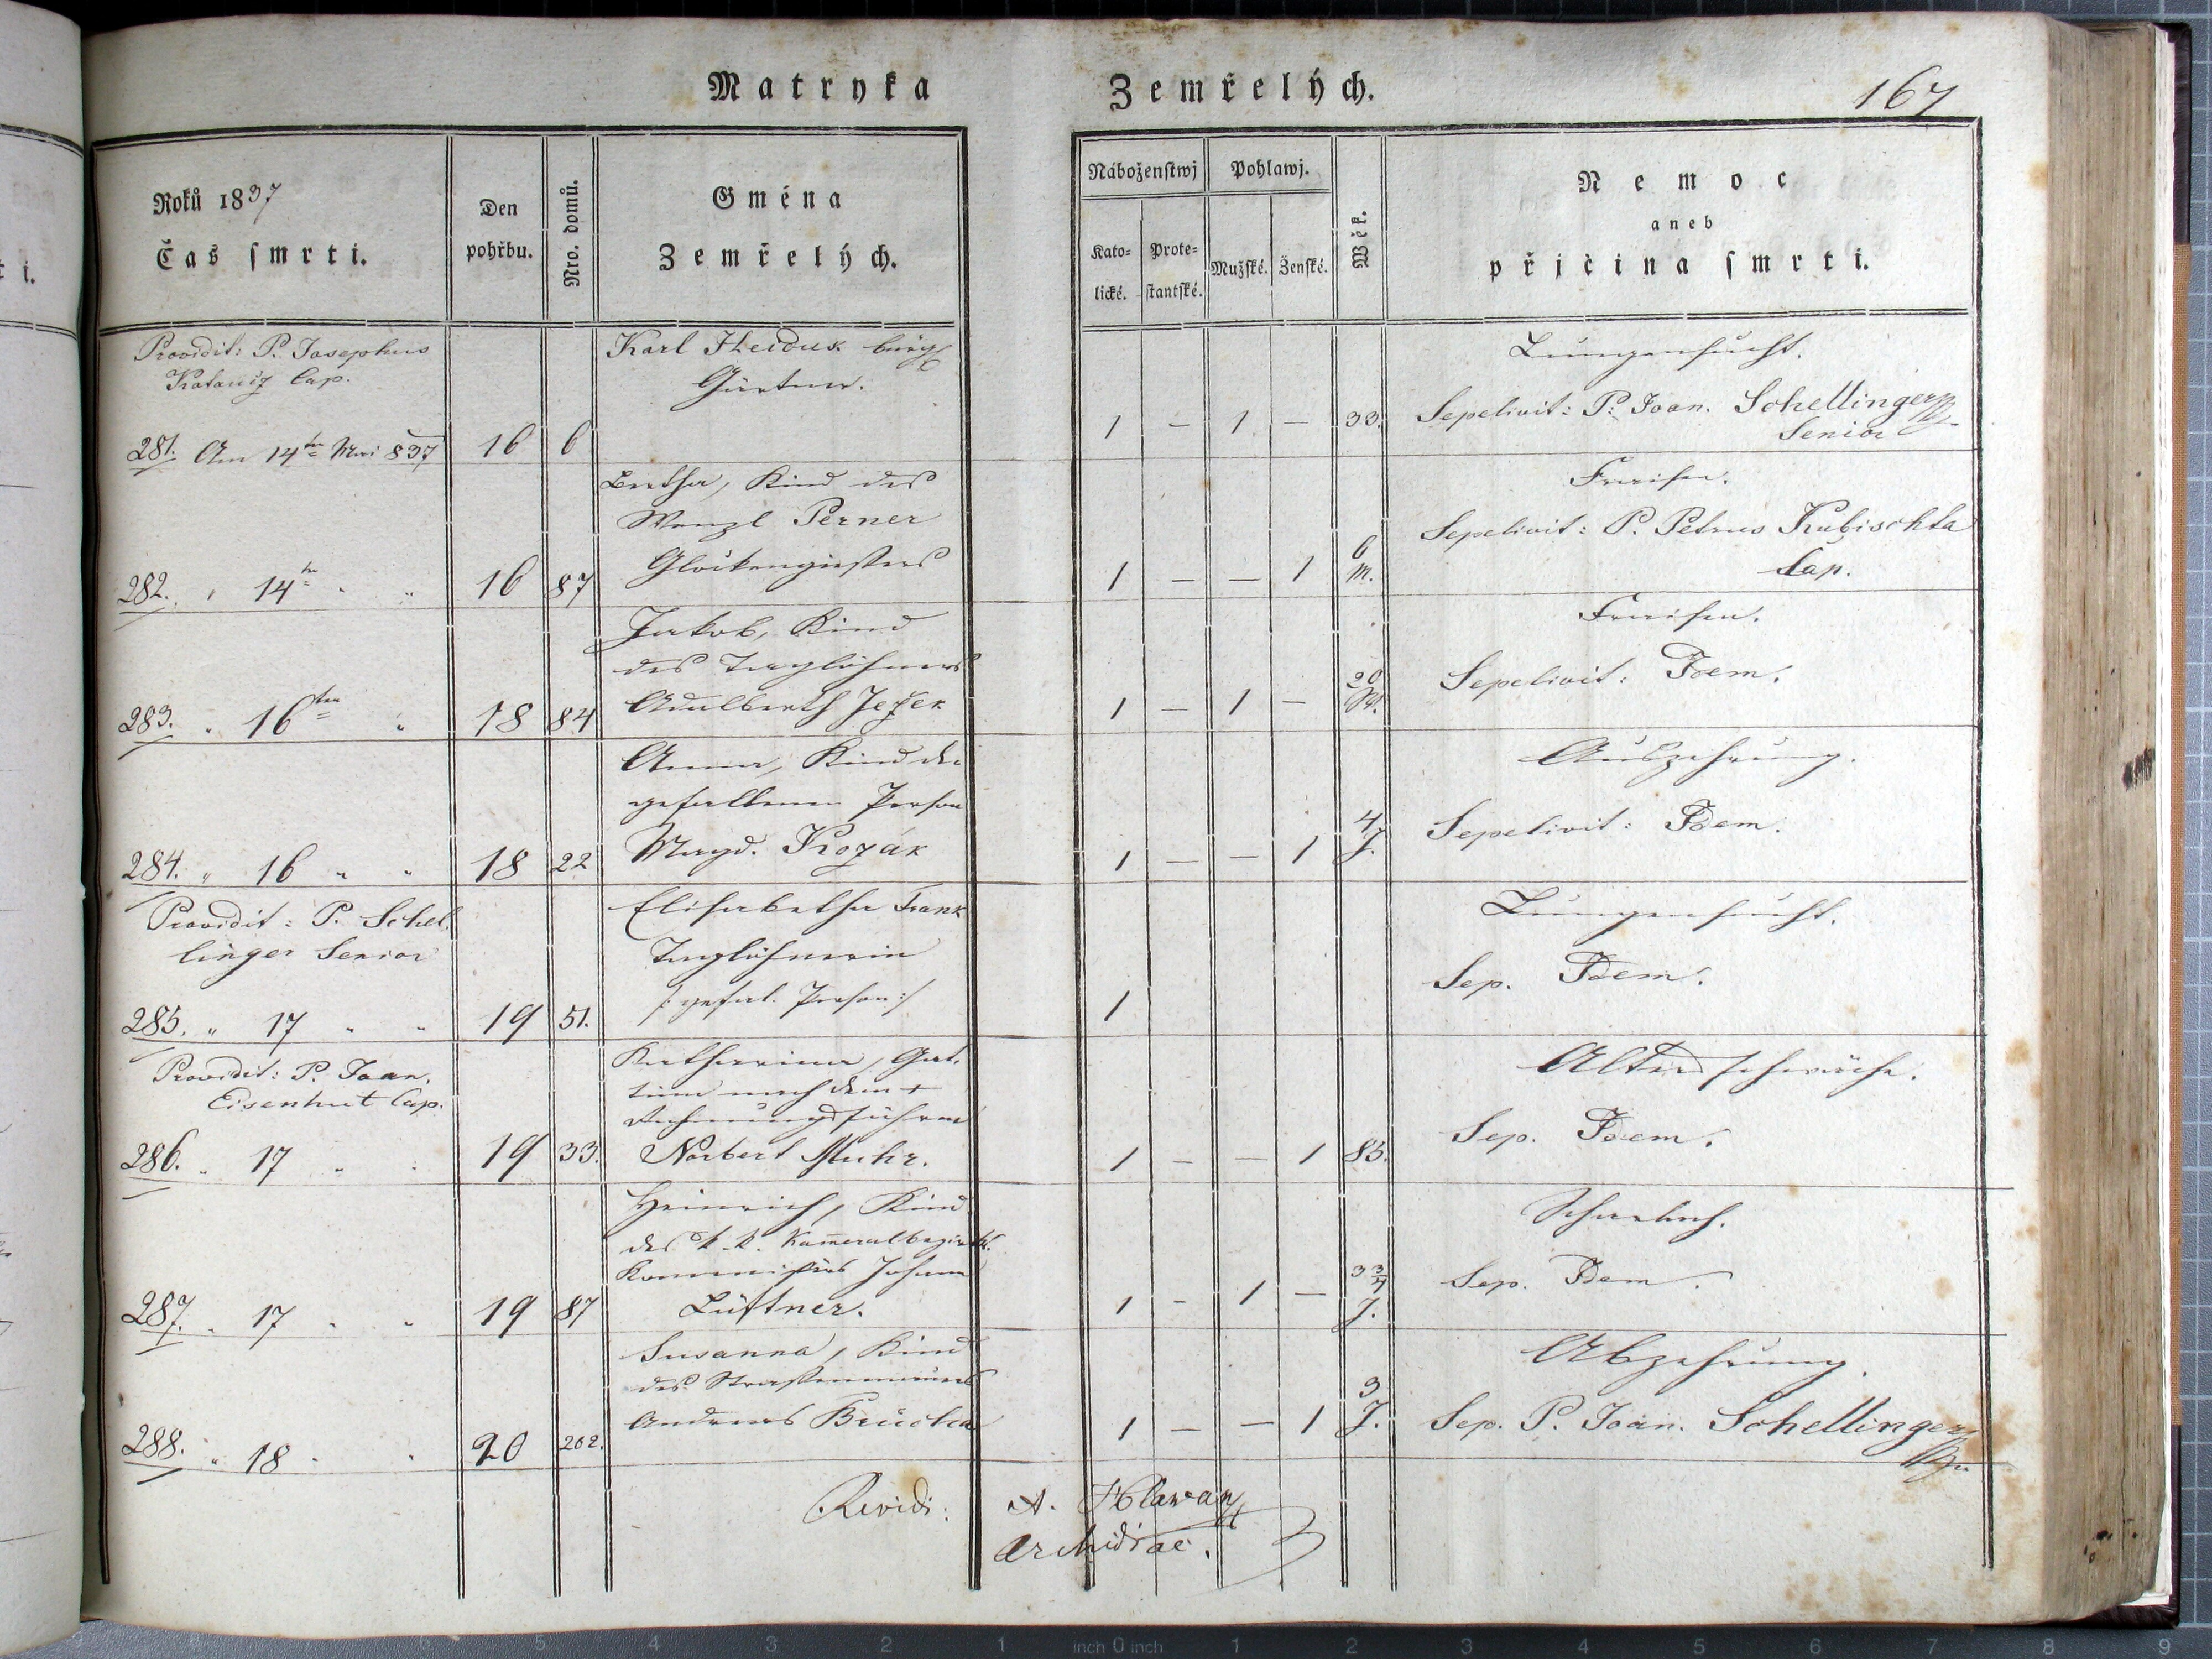 Matryka Zemřelých.
167
Roků 1837
Čas smrti.
Den
pohřbu.
Nro. domů.
Gména
Zemřelých.
Náboženstwj
Pohlawj.
Kato-
lické.
Prote-
stantské.
Mužské.
Ženské.
Wěk.
Nemoc
aneb
přjčina smrti.
Providit: P. Josephus
Cap.
281. Am 14ten Mai 837
16
6
Karl Heidus bürgl
Gärtner.
1 — 1 — 33.
Lungensucht.
Sepelivit: P. Joan. Schellinger
Senior
282. " 14ten " "
16
87
Bertha, Kind des
Wenzl Perner
Glockengießers
1 — — 1 6
M.
Fraisen.
Sepelivit: P. Petrus Kubischta
Cap.
283. " 16ten "
18
84
Jakob, Kind
des Taglöhners
Adalberth Ježek
1 — 1 — 20
W.
Fraisen.
Sepelivit: Idem.
284. " 16 " "
18
22
Anna, Kind der
gefallenen Person
Magd. Kozák
1 — — 1 4
J.
Auszehrung.
Sepelivit: Idem.
Providit: P. Schel-
linger Senior
285. " 17 " "
19
51.
Elisabetha Frank
Taglöhnerin
/: gefal. Person :/
1
Lungensucht.
Sep. Idem.
Providit: P. Joan.
Eisenhut Cap.
286. " 17 " "
19
33.
Katharina, Gat-
tinn nach dem +
Rechnungsführer
Norbert Muhr.
1 — — 1 85.
Altersschwäche.
Sep. Idem.
287. " 17 " "
19
87
Heinrich, Kind
des k. k. Kameralbezirks.
Kommissärs Johann
Lüftner.
1 - 1 — 3 3/4
J.
Scharlach.
Sep. Idem.
288. " 18 " "
20
202.
Susanna, Kind
des
Andreas Brücha
1 — — 1 3
J.
Abzehrung.
Sep. P. Joan. Schellinger
Revidi: A. Hlawan
Archidiac.